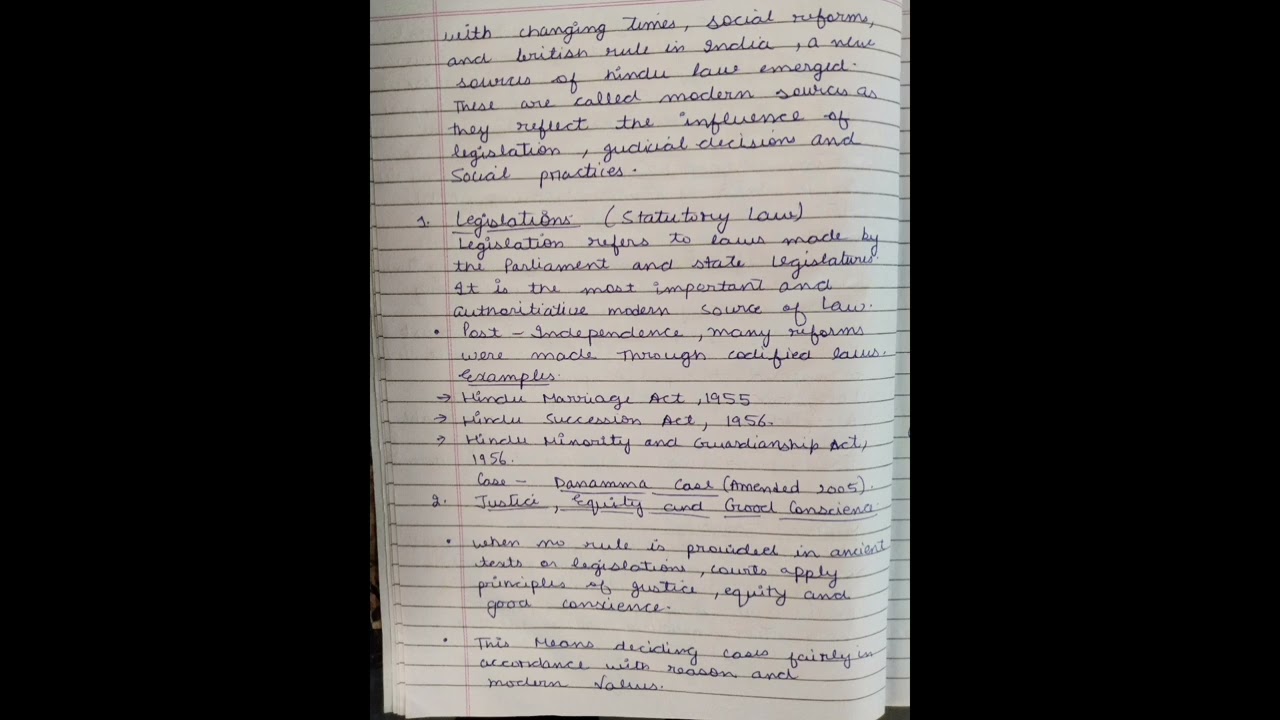 with changing times, social reforms,
and british rule in India, a new
sources of hindu law emerged.
These are called modern sources as
they reflect the influence of
legislation, judicial decisions and
Social practices.
1. Legislations (Statutory Law)
Legislation refers to laws made by
the Parliament and state legislatures.
It is the most important and
authoritiative modern source of law.
• Post - Independence, many reforms
were made through codified laws.
Examples.
→ Hindu Marriage Act, 1955
→ Hindu Succession Act, 1956.
→ Hindu Minority and Guardianship Act,
1956.
Case - Danamma Case (Amended 2005).
2. Justice, Equity and Good Conscienc
• when no rule is provided in ancient
texts or legislations, courts apply
principles of justice, equity and
good conscience.
• This Means deciding cases fairly in
accordance with reason and
modern values.